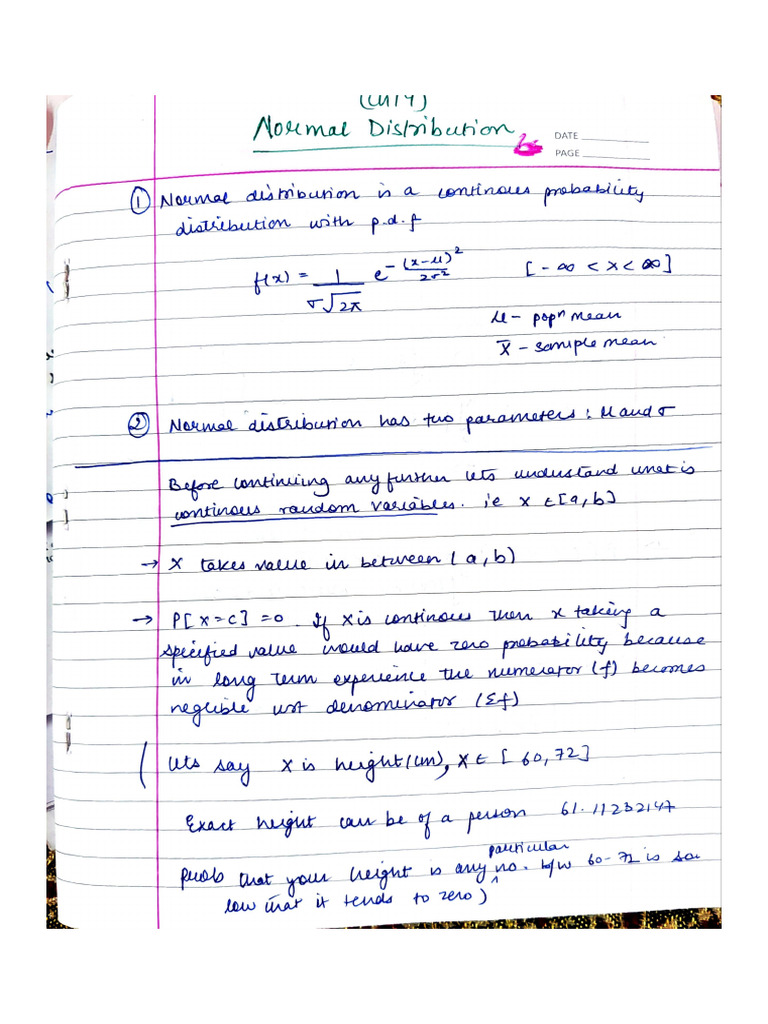 (Ch14)
Normal Distribution
DATE
PAGE
① Normal distribution is a continous probability
distribution with p.d.f
f(x) = 1/(σ√2π) e^-(x-μ)²/2σ² [-∞ < x < ∞]
μ - popⁿ mean
x̄ - sample mean
② Normal distribution has two parameters : μ and σ
Before continuing any further lets understand what is
continous random variables. ie x ∈ [a,b]
→ X takes value in between (a,b)
→ P[x=c] = 0. If X is continous then x taking a
specified value would have zero probability because
in long term experience the numerator (f) becomes
neglible wrt denominator (Σf)
( lets say X is height(cm), X ∈ [60,72]
Exact height can be of a person 61.11232147
particular
Prob that your height is any no. b/w 60-72 is so
low that it tends to zero)